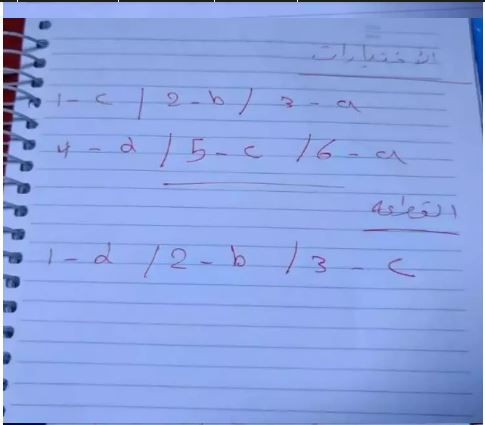 الاختبارات
1-c / 2-b / 3-a
4-d / 5-c / 6-a
القطعة
1-d / 2-b / 3-c